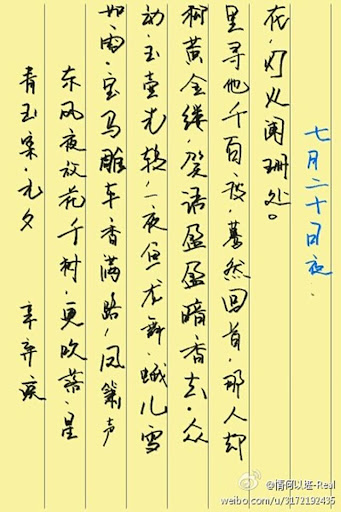 青玉案·元夕 辛弃疾
东风夜放花千树，更吹落，星
如雨，宝马雕车香满路，凤箫声
动，玉壶光转，一夜鱼龙舞，蛾儿雪
柳黄金缕，笑语盈盈暗香去，众
里寻他千百度，蓦然回首，那人却
在，灯火阑珊处。
七月二十日夜.
@情何以堪-Real
weibo.com/u/3172192435